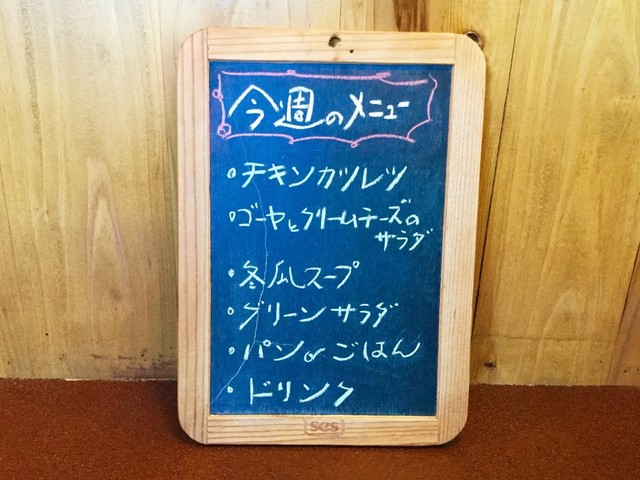 今週のメニュー
・チキンカツレツ
・ゴーヤとクリームチーズの
サラダ
・冬瓜スープ
・グリーンサラダ
・パンorごはん
・ドリンク
SGS